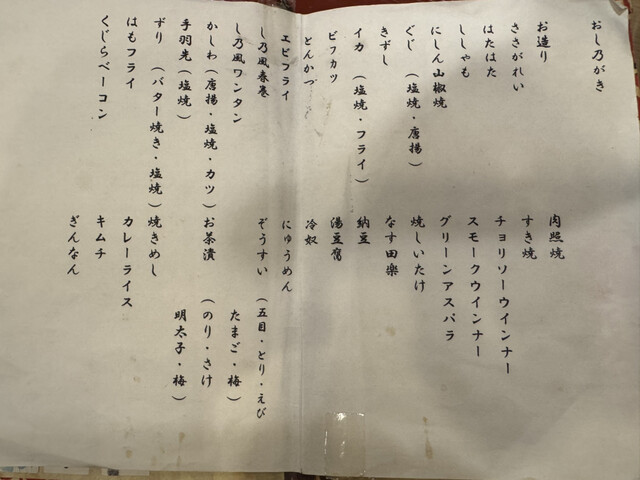 おし乃がき
お造り
ささがれい
はたはた
ししゃも
にしん山椒焼
ぐじ（塩焼・唐揚）
きずし
イカ（塩焼・フライ）
ビフカツ
とんかつ
エビフライ
し乃風春巻
し乃風ワンタン
かしわ（唐揚・塩焼・カツ）
手羽先（塩焼）
ずり（バター焼き・塩焼）
はもフライ
くじらベーコン
肉照焼
すき焼
チョリソーウインナー
スモークウインナー
グリーンアスパラ
焼しいたけ
なす田楽
納豆
湯豆腐
冷奴
にゅうめん
ぞうすい（五目・とり・えび
たまご・梅）
お茶漬（のり・さけ
明太子・梅）
焼きめし
カレーライス
キムチ
ぎんなん